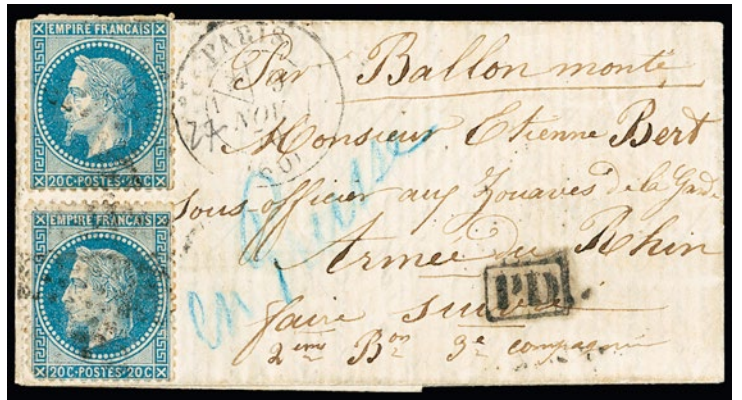 EMPIRE FRANÇAIS
20C·POSTES·20C
EMPIRE FRANÇAIS
20C·POSTES·20C
PARIS
NOV
(60)
Par Ballon monté
Monsieur Etienne Bert
Sous-officier aux Zouaves de la Garde
Armée du Rhin
faire suivre
2eme Bon 3e compagnie
en Prusse
PD